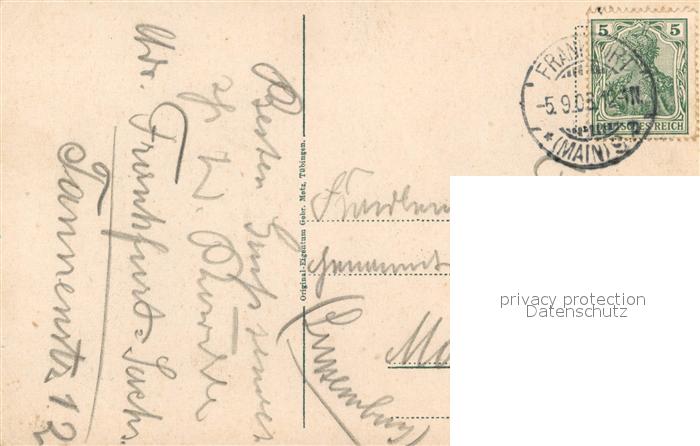 Besten Gruss sendet
W.
Adr. Frankfurt-Sachs.
Tannenstr. 12
Original-Eigentum Gebr. Metz, Tübingen.
5 5
DEUTSCHES REICH
FRANKFURT
-5.9.05.12-1N.
* (MAIN) 9
genannt
Ma
(Luxemburg)
privacy protection
Datenschutz